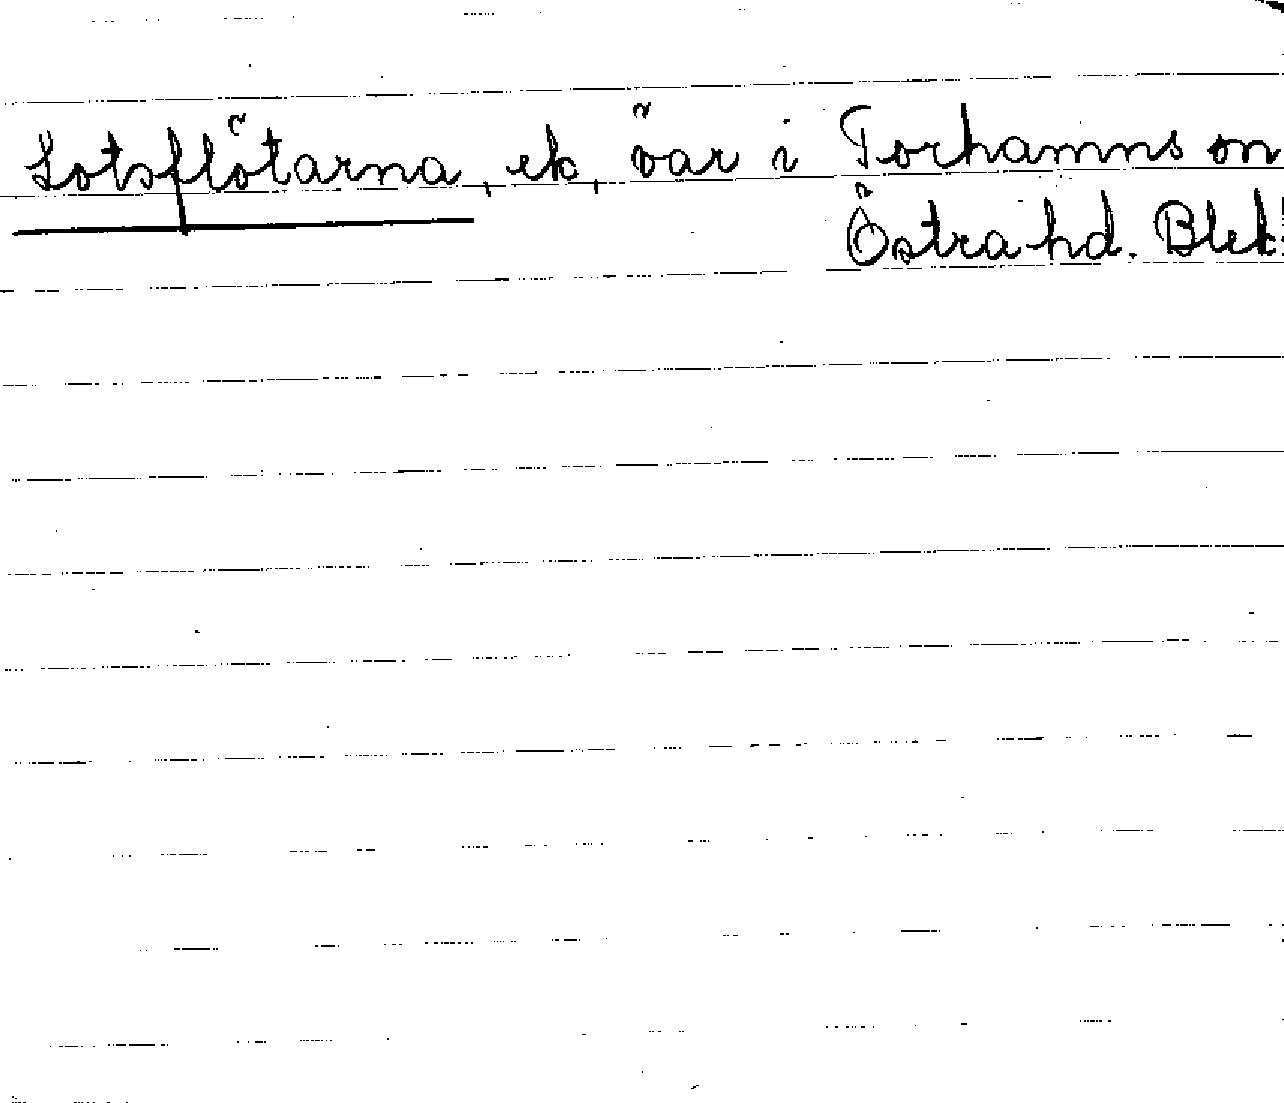 Lotsflötarna, ek, övar i Torhamns sn
Östra hd. Blek.